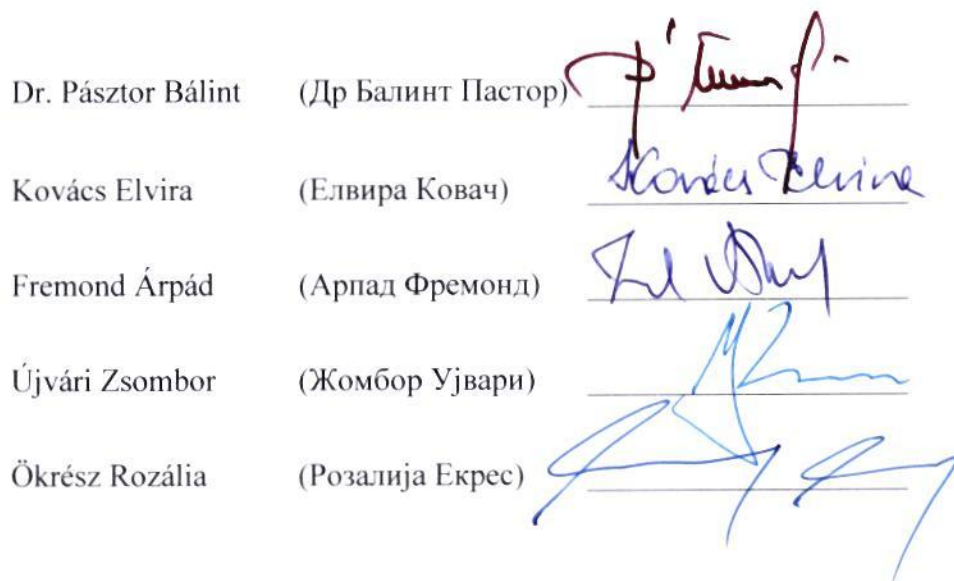 Dr. Pásztor Bálint (Др Балинт Пастор)
Kovács Elvira (Елвира Ковач) Kovács Elvira
Fremond Árpád (Арпад Фремонд)
Újvári Zsombor (Жомбор Ујвари)
Ökrész Rozália (Розалија Екрес)